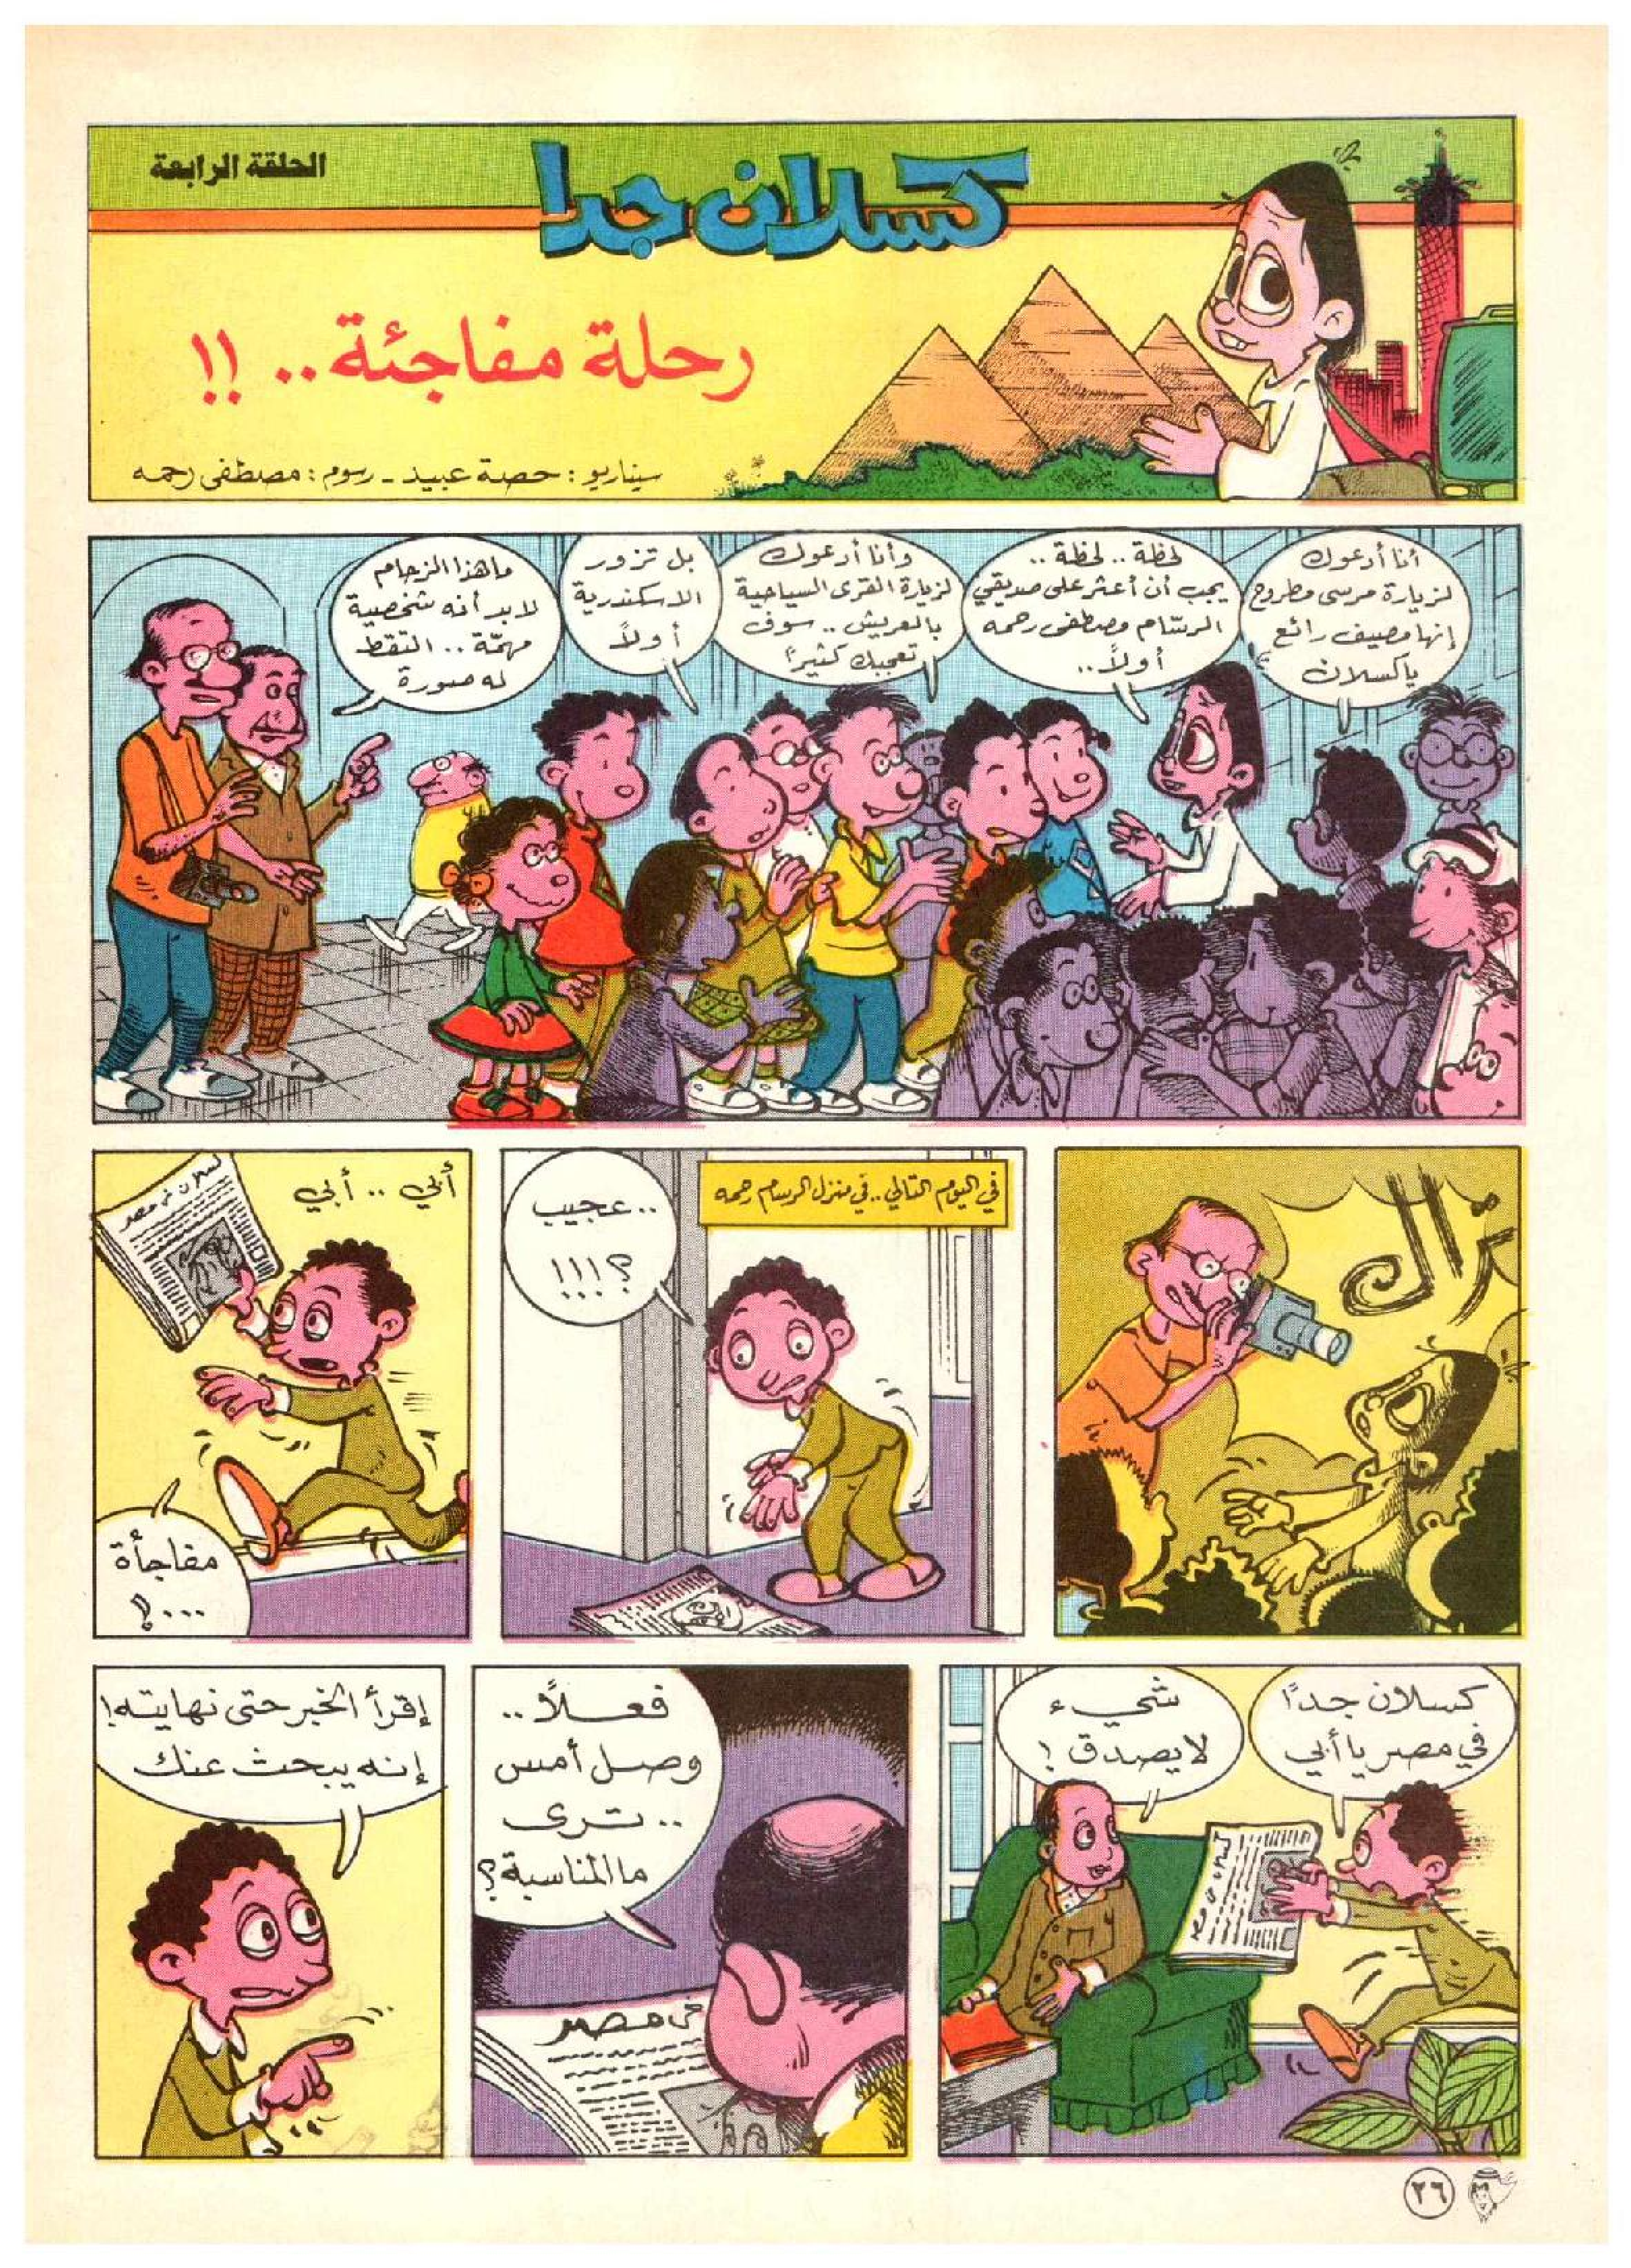 الحلقة الرابعة
كسلان جدا
رحلة مفاجئة.. !!
سيناريو : حصة عبيد - رسوم : مصطفى رحمه
أنا أدعوك
لزيارة مرسى مطروح
إنها مصيف رائع
يا كسلان
لحظة .. لحظة ..
يجب أن أعثر على صديقي
الرسّام مصطفى رحمه
أولاً ..
وأنا أدعوك
لزيارة القرى السياحية
بالعريش .. سوف
تعجبك كثيراً
بل تزور
الاسكندرية
أولاً
ما هذا الزحام
لا بد أنه شخصية
مهمّة .. التقط
له صورة
تراك
في اليوم التالي .. في منزل الرسام رحمه
.. عجيب
؟!!!
أبي .. أبي
كسلان في مصر
مفاجأة
...؟!
كسلان جداً
في مصر يا أبي
شيء
لا يصدق !
كسلان في مصر
فعلاً ..
وصل أمس
.. ترى
ما المناسبة؟
في مصر
إقرأ الخبر حتى نهايته!
إنه يبحث عنك
٢٦